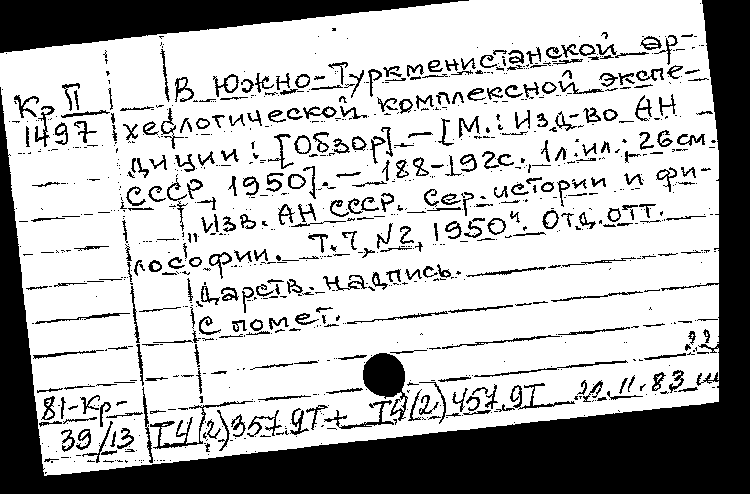 В Южно-Туркменистанской ар-
Кр П
1497
хеологической комплексной экспе-
диции: [Обзор]. — [М.: Изд-во АН
СССР, 1950]. — 188-192с., 1л.ил.; 26см.
„Изв. АН СССР. Сер. истории и фи-
лософии. Т.7, №2, 1950“. Отд. отт.
Дарств. надпись.
С помет.
22
81-Кр-
39/13
Т4(2)357.9Т + Т4(2)457.9Т 20.11.83